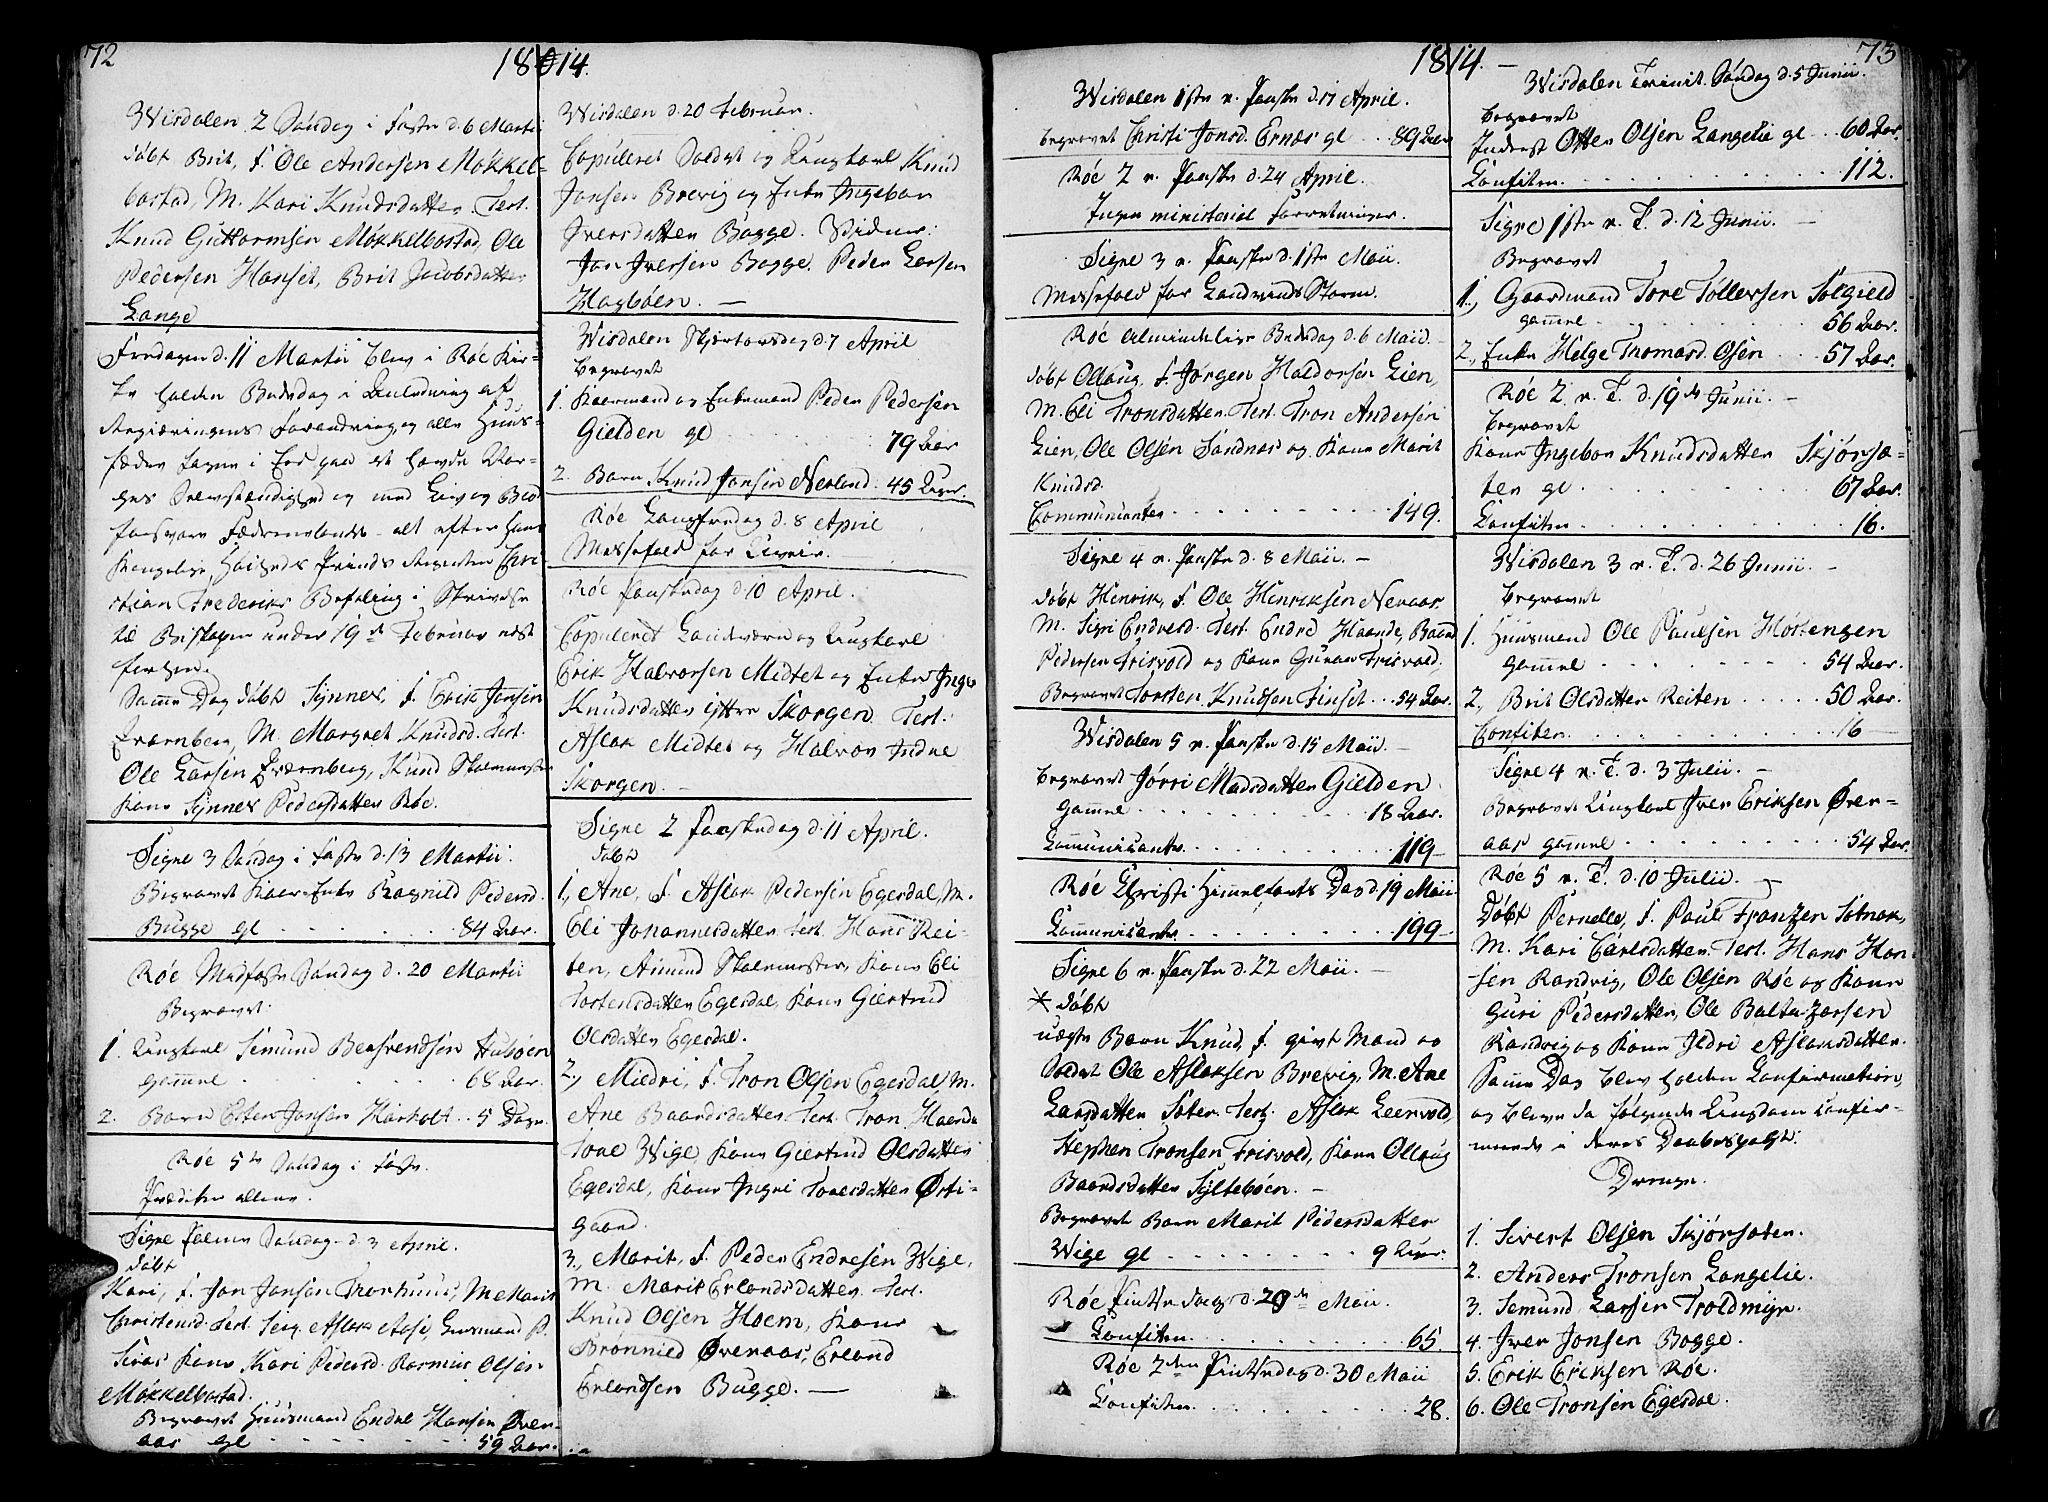 72
1814.
Wisdalen 2 Søndag i Faste d. 6 Martii
døbt Brit, F. Ole Andersen Mökkel-
bostad, M. Kari Knudsdatter. Test.
Knud Guttormsen Mökkelbostad, Ole
Pedersen Hanset, Brit Jacobsdatter
Lange
Fredagen d. 11 Martii blev i Røe Kir-
ke holden Bededag i Anledning af
Regieringens Forandring, og alle Huus-
fædre
Kongelige Høiheds Prinds Regenten Chri
stian Frederiks Befaling i Skrivelse
til Biskopen under 19de Februar nest
forhen.
Samme Dag døbt Synnev, F. Erik Jensen
M. Margret Knudsd. Test.
Ole Larsen
Kone Synnev Pedersdatter Røe.
Signe 3 Søndag i Faste d. 13 Martii.
Begravet Kaar-Enke Ragnild Pedersd.
Bugge gl . . . 84 Aar.
Røe Midfaste Søndag d. 20 Martii
Begravet:
1. Ungkarl Semund Husøen
gamel . . . 68 Aar.
2. Barn Jonsen . . . 5 Dage.
Røe 5te Søndag i Faste.
Præken allene.
Signe Palme Søndag d. 3 April.
døbt
Kari, F. Jon Jonsen M. Marit
Christensd. Test. Aslak Aase,
Kone Kari Pedersd. Rasmus Olsen
Mökkelbostad.
Begravet Huusmand Endre Hansen Över-
aas gl . . . 59 Aar.
Wisdalen d. 20 Februar.
Copuleret Soldat og Ungkarl Knud
Jonsen Brevig og Enke Ingebor
Iversdatter Bogge. Vidner:
Jon Iversen Bogge. Peder Larsen
Hagböen. —
Wisdalen Skjertorsdag d. 7 April
begravet
1. Kaarmand og Enkemand Peder Pedersen
Gielden gl . . . 79 Aar
2. Barn Knud Jonsen Nerland. 45 Uger.
Røe Langfredag d. 8 April
Messefald for Uveir.
Røe Paaskedag d. 10 April.
Copuleret Landeværn og Ungkarl
Erik Halvorsen Midtet og Enke Inge
Knudsdatter yttre Skorgen. Test.
Aslak Midtet og Halvor Indre
Skorgen. —
Signe 2 Paaskedag d. 11 April.
døbt
1., Ane, F. Aslak Pedersen Egesdal, M.
Eli Johannesdatter. Test. Hans Rei-
ten, Amund Skolemester, Kone Eli
Torstensdatter Egesdal, Kone Giertrud
Olsdatter Egesdal.
2., Mildri, F. Tron Olsen Egesdal, M.
Ane Baardsdatter. Test. Tron
Tore Wige, Kone Giertrud Olsdatter
Egesdal, Kone Ingri Toresdatter Østi-
gaard.
3., Marit, F. Peder Endresen Wige,
M. Marit Erlandsdatter. Test.
Knud Olsen Hoem, Kone
Brønnild Øveraas, Erland
Erlandsen Bugge. —
1814. —
73
Wisdalen 1ste p. Paaske d. 17 April.
begravet Christi Jonsd. Ernæs gl . . 89 Aar
Røe 2 p. Paaske d. 24 April.
Ingen ministerial Forretninger.
Signe 3 p. Paaske d. 1ste Maii.
Messefald for Landvinds Storm.
Røe Almindelige Bededag d. 6 Maii.
døbt Ollaug, F. Jørgen Haldorsen Lien,
M. Eli Tronsdatter. Test. Tron Andersen
Lien, Ole Olsen Sandnæs og Kone Marit
Knudsd.
Communicanter . . . 149.
Signe 4 p. Paaske d. 8 Maii. —
døbt Henrik, F. Ole Henriksen Neraas
M. Sigri Endresd. Test. Endre Haande, Baard
Pedersen Frisvold og Kone Guran Frisvold.
Begravet Torsten Knudsen Finset . . 54 Aar.
Wisdalen 5 p. Paaske d. 15 Maii. —
begravet Jörri Madsdatter Gielden
gamel . . . 18 Aar.
Communicanter . . . 119—
Røe Christi Himmelfarts Dag d. 19 Maii
Communicanter . . . 199—
Signe 6 p. Paaske d. 22 Maii. —
* døbt
uægte Barn Knud, F. givt Mand og
Soldat Ole Aslaksen Brevig, M. Ane
Larsdatter Test. Aslak Leervold,
Stephen Tronsen Frisvold, Kone Ollaug
Baardsdatter Syltebøen. —
Begravet Barn Marit Pedersdatter
Wige gl . . . 9 Aar.
Røe Pintse Dag d. 29de Maii.
Confiten. . . . 65.
Røe 2den Pintsedag d. 30 Maii
Confiten. . . . 28.
Wisdalen Trinit. Søndag d. 5 Junii.
begravet
Inderst Otter Olsen Langelie gl . . 60 Aar.
Confiten. . . . 112.
Signe 1ste p. T. d. 12 Junii. —
Begravet
1., Gaardmand Tore Tollevsen Solgield
gamel . . . 56 Aar.
2., Enke Helge Thomasd. Osen . . 57 Aar.
Røe 2 p. T. d. 19de Junii. —
begravet
Kone Ingebor Knudsdatter Skjørsæ-
ter gl . . . 67 Aar.
Confiten. . . . 16.
Wisdalen 3 p. T. d. 26 Junii. —
begravet
1. Huusmand Ole Paulsen Høstengen
gamel . . . 54 Aar.
2., Brit Olsdatter Reiten . . . 50 Aar.
Confiten. . . . 16 —
Signe 4 p. T. d. 3 Julii. —
Begravet Ungkarl Iver Eriksen Øver-
aas gamel . . . 54 Aar.
Røe 5 p. T. d. 10 Julii. —
Døbt Pernelle, F. Paul Frantzen Solnæs,
M. Kari Carlsdatter. Test. Hans Han-
sen Randvig, Ole Olsen Røe og Kone
Guri Pedersdatter, Ole Baltazersen
Randvig og Kone Ildri Aslaksdatter.
Samme Dag blev holden Confirmation,
og bleve da følgende Ungdom confir-
merede i deres Daabespagt:
Drenge.
1. Sivert Olsen Skjørsæter.
2. Anders Tronsen Langelie.
3. Semund Larsen Troldmyr.
4. Iver Jonsen Bogge.
5. Erik Ericksen Røe.
6. Ole Tronsen Egesdal.